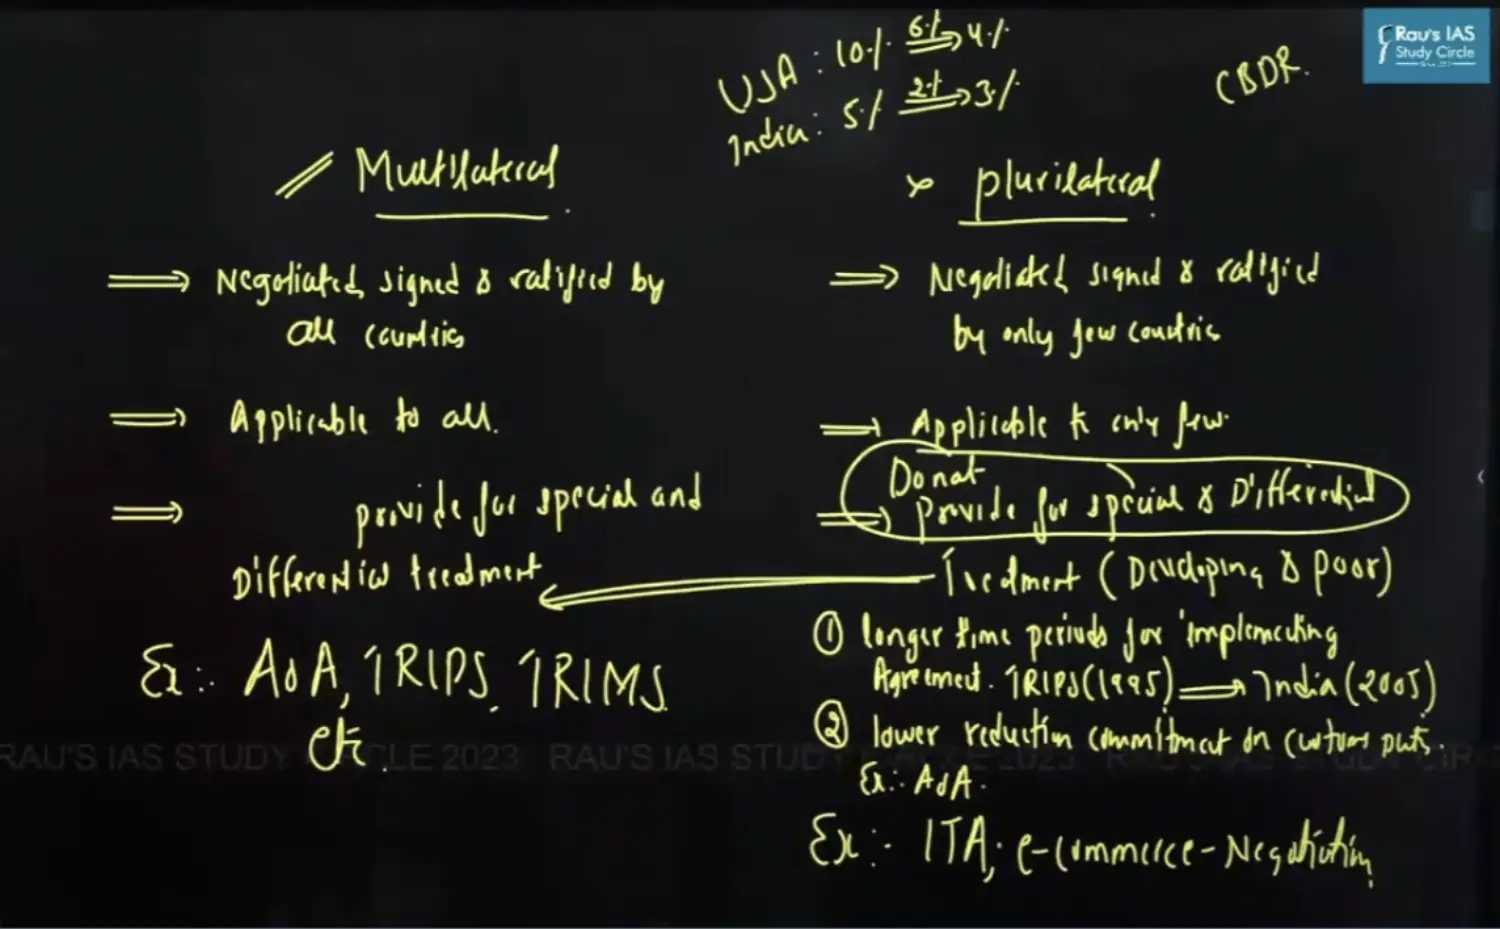 USA : 10% 6% → 4%
India : 5% 2% → 3%
CBDR.
Rau's IAS
Study Circle
Multilateral
⇒ Negotiated, signed & ratified by
all countries
⇒ Applicable to all.
⇒ provide for special and
Differential treatment
Ex:. AoA, TRIPS, TRIMS
etc.
× plurilateral
⇒ Negotiated signed & ratified
by only few countries
⇒ Applicable to only few.
Do not
⇒ Provide for special & Differential
Treatment (Developing & poor)
① longer time periods for implementing
Agreement. TRIPS (1995) ⇒ India (2005)
② lower reduction commitment on customs
Ex:. AoA.
Ex:- ITA, e-commerce-Negotiation
RAU'S IAS STUDY CIRCLE 2023 RAU'S IAS STUDY CIRCLE 2023